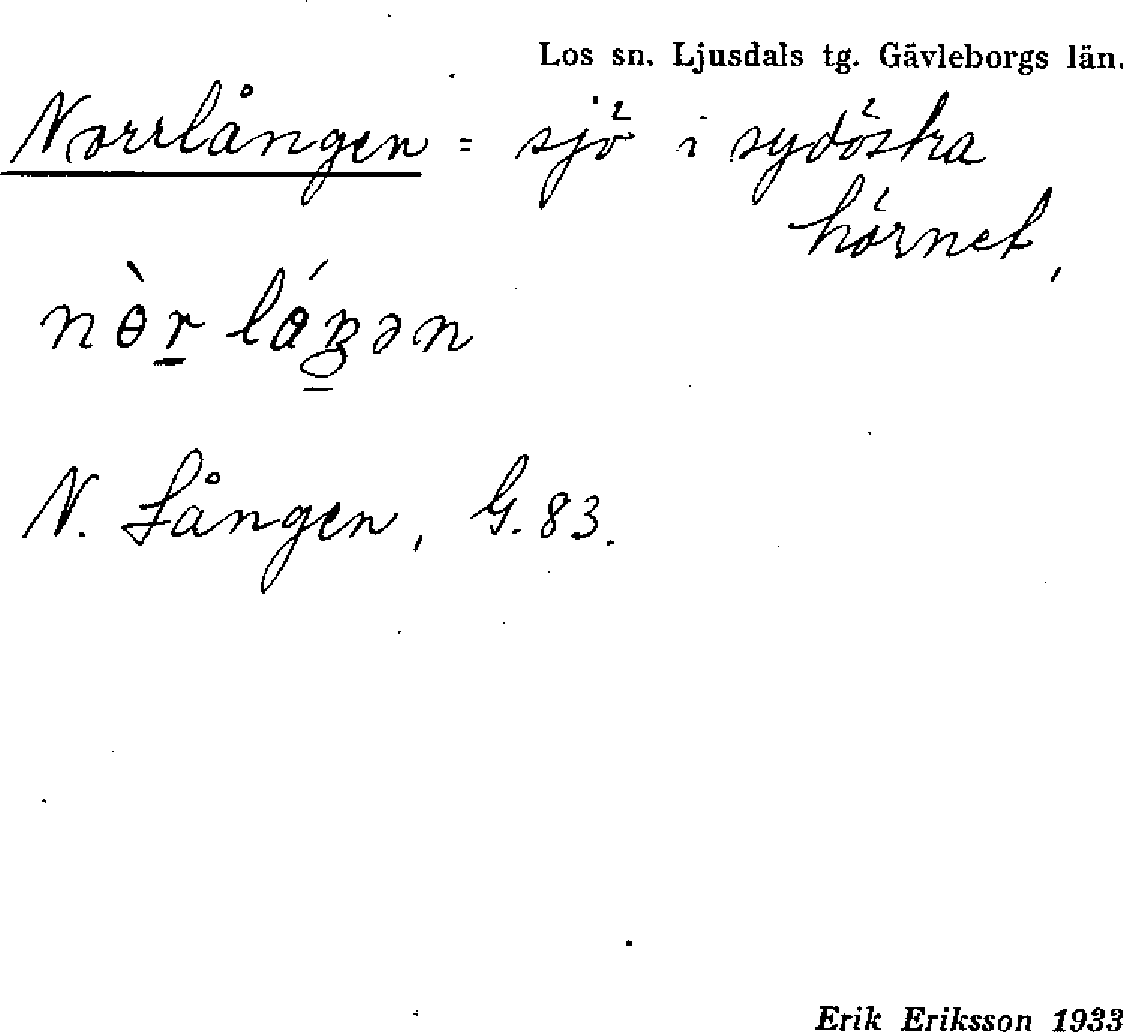 Los sn. Ljusdals tg. Gävleborgs län.
Norrlången = sjö i sydöstra
hörnet,
nɵ̀r lɵ́ŋən
N. Lången, G. 83.
Erik Eriksson 1933